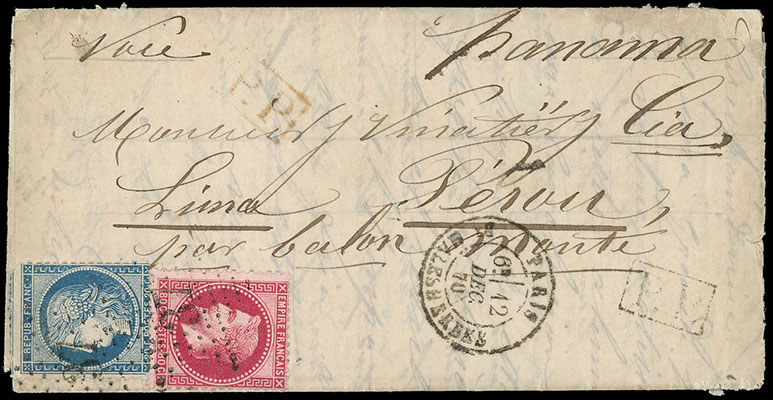 Voie Panama
P.P.
Monsieur J Vinatier Cia,
Lima Pérou,
par balon monté
PARIS
6E 12
DEC
70
BD MALESHERBES
P.P.
REPUB. FRANC.
EMPIRE FRANÇAIS
80C POSTES 80C